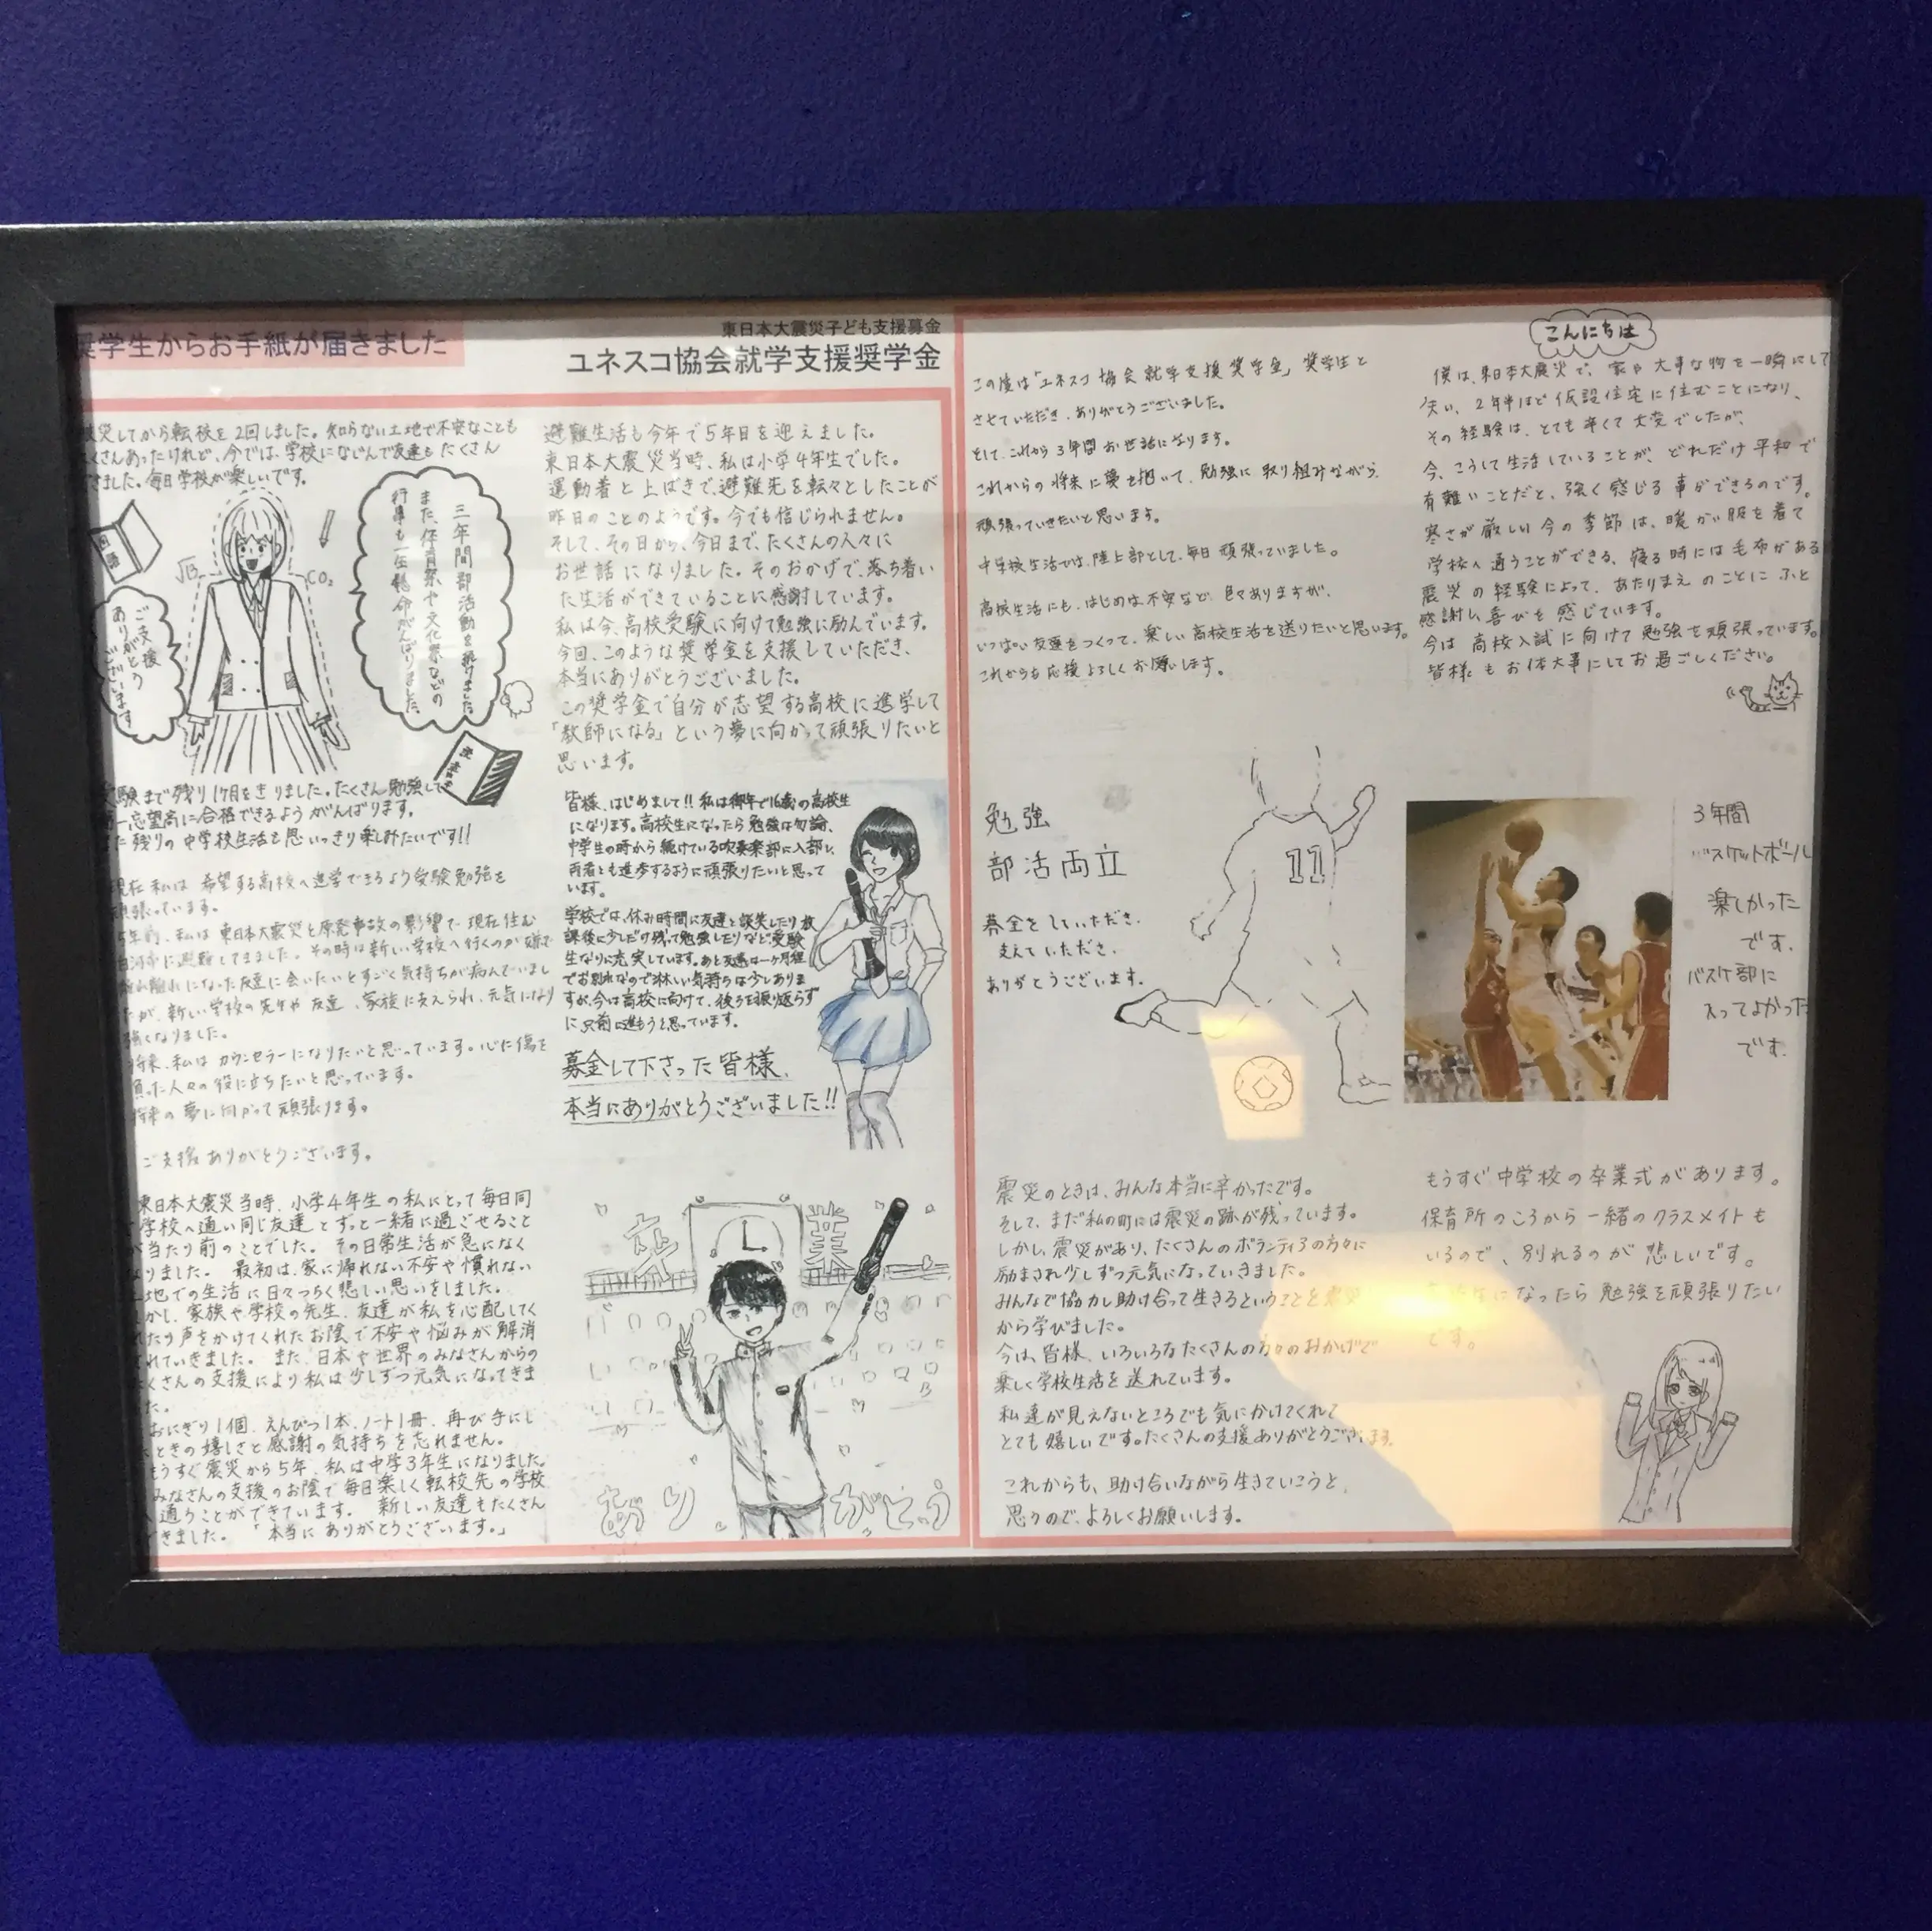 奨学生からお手紙が届きました
東日本大震災子ども支援募金
ユネスコ協会就学支援奨学金
災してから転校を2回しました。知らない土地で不安なことも
くさんあったけれど、今では、学校になじんで友達もたくさん
きました。毎日学校が楽しいです。
国語
√B
CO₂
三年間部活動を続けました。
また、体育祭や文化祭などの
行事も一生懸命がんばりました。
ご支援
ありがとう
ございます
験まで残り1ヶ月をきりました。たくさん勉強して
一志望高に合格できるようがんばります。
た残りの中学校生活を思いっきり楽しみたいです!!
現在私は希望する高校へ進学できるよう受験勉強を
頑張っています。
5年前、私は東日本大震災と原発事故の影響で現在住む
白河市に避難してきました。その時は新しい学校へ行くのが嫌で
離れ離れになった友達に会いたいとすごく気持ちが病んでいまし
たが、新しい学校の先生や友達、家族に支えられ、元気になり
強くなりました。
将来、私はカウンセラーになりたいと思っています。心に傷を
負った人々の役に立ちたいと思っています。
将来の夢に向かって頑張ります。
ご支援ありがとうございます。
東日本大震災当時、小学4年生の私にとって毎日同
学校へ通い同じ友達とずっと一緒に過ごせること
が当たり前のことでした。その日常生活が急になく
なりました。最初は、家に帰れない不安や慣れない
土地での生活に日々つらく悲しい思いをしました。
かし、家族や学校の先生、友達が私を心配してく
れたり声をかけてくれたお陰で不安や悩みが解消
されていきました。また、日本や世界のみなさんからの
たくさんの支援により私は少しずつ元気になってきま
た。
おにぎり1個、えんぴつ1本、ノート1冊、再び手にし
ときの嬉しさと感謝の気持ちを忘れません。
もうすぐ震災から5年、私は中学3年生になりました。
みなさんの支援のお陰で毎日楽しく転校先の学校
へ通うことができています。新しい友達もたくさん
できました。「本当にありがとうございます。」
避難生活も今年で5年目を迎えました。
東日本大震災当時、私は小学4年生でした。
運動着と上ばきで、避難先を転々としたことが
昨日のことのようです。今でも信じられません。
そして、その日から、今日まで、たくさんの人々に
お世話になりました。そのおかげで、落ち着い
た生活ができていることに感謝しています。
私は今、高校受験に向けて勉強に励んでいます。
今回、このような奨学金を支援していただき、
本当にありがとうございました。
この奨学金で自分が志望する高校に進学して
「教師になる」という夢に向かって頑張りたいと
思います。
皆様、はじめまして!! 私は御年で16歳の高校生
になります。高校生になったら勉強は勿論、
中学生の時から続けている吹奏楽部に入部し、
両者とも進歩するように頑張りたいと思って
います。
学校では、休み時間に友達と談笑したり放
課後に少しだけ残って勉強したりなど受験
生なりに充実しています。あと友達は一ヶ月程
でお別れなので淋しい気持ちは少しありま
すが、今は高校に向けて、後ろを振り返らず
に只前に進もうと思っています。
募金して下さった皆様、
本当にありがとうございました!!
卒業
ありがとう
この度は「ユネスコ協会就学支援奨学金」奨学生と
させていただき、ありがとうございました。
そして、これから3年間お世話になります。
これからの将来に夢を抱いて、勉強に取り組みながら、
頑張っていきたいと思います。
中学校生活では、陸上部として、毎日頑張っていました。
高校生活にも、はじめは不安など色々ありますが、
いっぱい友達をつくって、楽しい高校生活を送りたいと思います。
これからも応援よろしくお願いします。
勉強
部活両立
募金をしていただき、
支えていただき、
ありがとうございます。
11
震災のときは、みんな本当に辛かったです。
そして、まだ私の町には震災の跡が残っています。
しかし、震災があり、たくさんのボランティアの方々に
励まされ少しずつ元気になっていきました。
みんなで協力し助け合って生きるということを震災
から学びました。
今は、皆様、いろいろなたくさんの方々のおかげで
楽しく学校生活を送れています。
私達が見えないところでも気にかけてくれて
とても嬉しいです。たくさんの支援ありがとうございます。
これからも、助け合いながら生きていこうと
思うので、よろしくお願いします。
こんにちは
僕は、東日本大震災で、家や大事な物を一瞬にして
失い、2年半ほど仮設住宅に住むことになり、
その経験は、とても辛くて大変でしたが、
今、こうして生活していることが、どれだけ平和で
有難いことだと、強く感じる事ができるのです。
寒さが厳しい今の季節は、暖かい服を着て
学校へ通うことができる、寝る時には毛布がある
震災の経験によって、あたりまえのことにふと
感謝し、喜びを感じています。
今は高校入試に向けて勉強を頑張っています。
皆様もお体大事にしてお過ごしください。
3年間
バスケットボール
楽しかった
です。
バスケ部に
入ってよかった
です。
もうすぐ中学校の卒業式があります。
保育所のころから一緒のクラスメイトも
いるので、別れるのが悲しいです。
になったら勉強を頑張りたい
です。